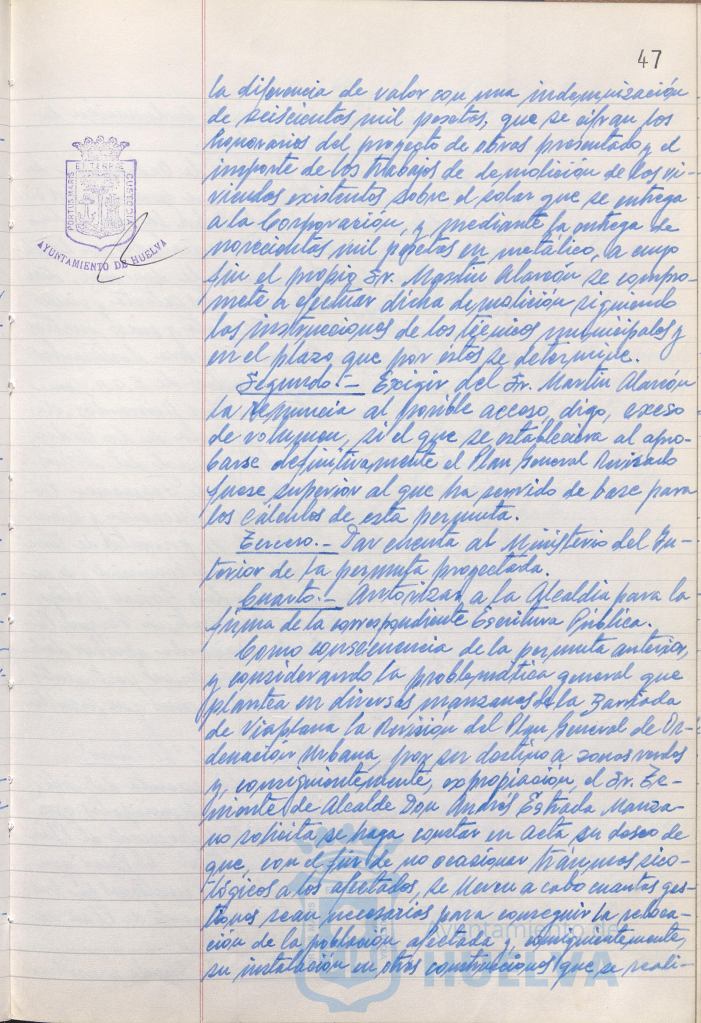 47
la diferencia de valor con una indemnización
de seiscientas mil pesetas, que se cifran los
honorarios del proyecto de obras presentado y el
importe de los trabajos de demolición de las vi-
viendas existentes sobre el solar que se entrega
a la Corporación, y mediante la entrega de
novecientas mil pesetas en metálico, a cuyo
fin el propio Sr. Martín Alarcón se compro-
mete a efectuar dicha demolición siguiendo
las instrucciones de los técnicos municipales y
en el plazo que por estos se determine.
Segundo.- Exigir del Sr. Martín Alarcón
la renuncia al posible acceso, digo, exceso
de volumen, si el que se estableciera al apro-
barse definitivamente el Plan General Revisado
fuese superior al que ha servido de base para
los cálculos de esta permuta.
Tercero.- Dar cuenta al Ministerio del In-
terior de la permuta proyectada.
Cuarto.- Autorizar a la Alcaldía para la
firma de la correspondiente Escritura Pública.
Como consecuencia de la permuta anterior,
y considerando la problemática general que
plantea en diversas manzanas de la Barriada
de Viaplana la Revisión del Plan General de Or-
denación Urbana, por ser destino a zonas verdes
y, consiguientemente, expropiación, el Sr. Te-
niente de Alcalde Don Andrés Estrada Manza-
no solicita se haga constar en acta su deseo de
que, con el fin de no ocasionar traumas sico-
lógicos a los afectados, se lleven a cabo cuantas ges-
tiones sean necesarias para conseguir la reloca-
ción de la población afectada y, consiguientemente,
su instalación en otras construcciones que se reali-
PORTUS MARIS
ET TERRAE
CUSTODIA
AYUNTAMIENTO DE HUELVA
Ayuntamiento de
HUELVA